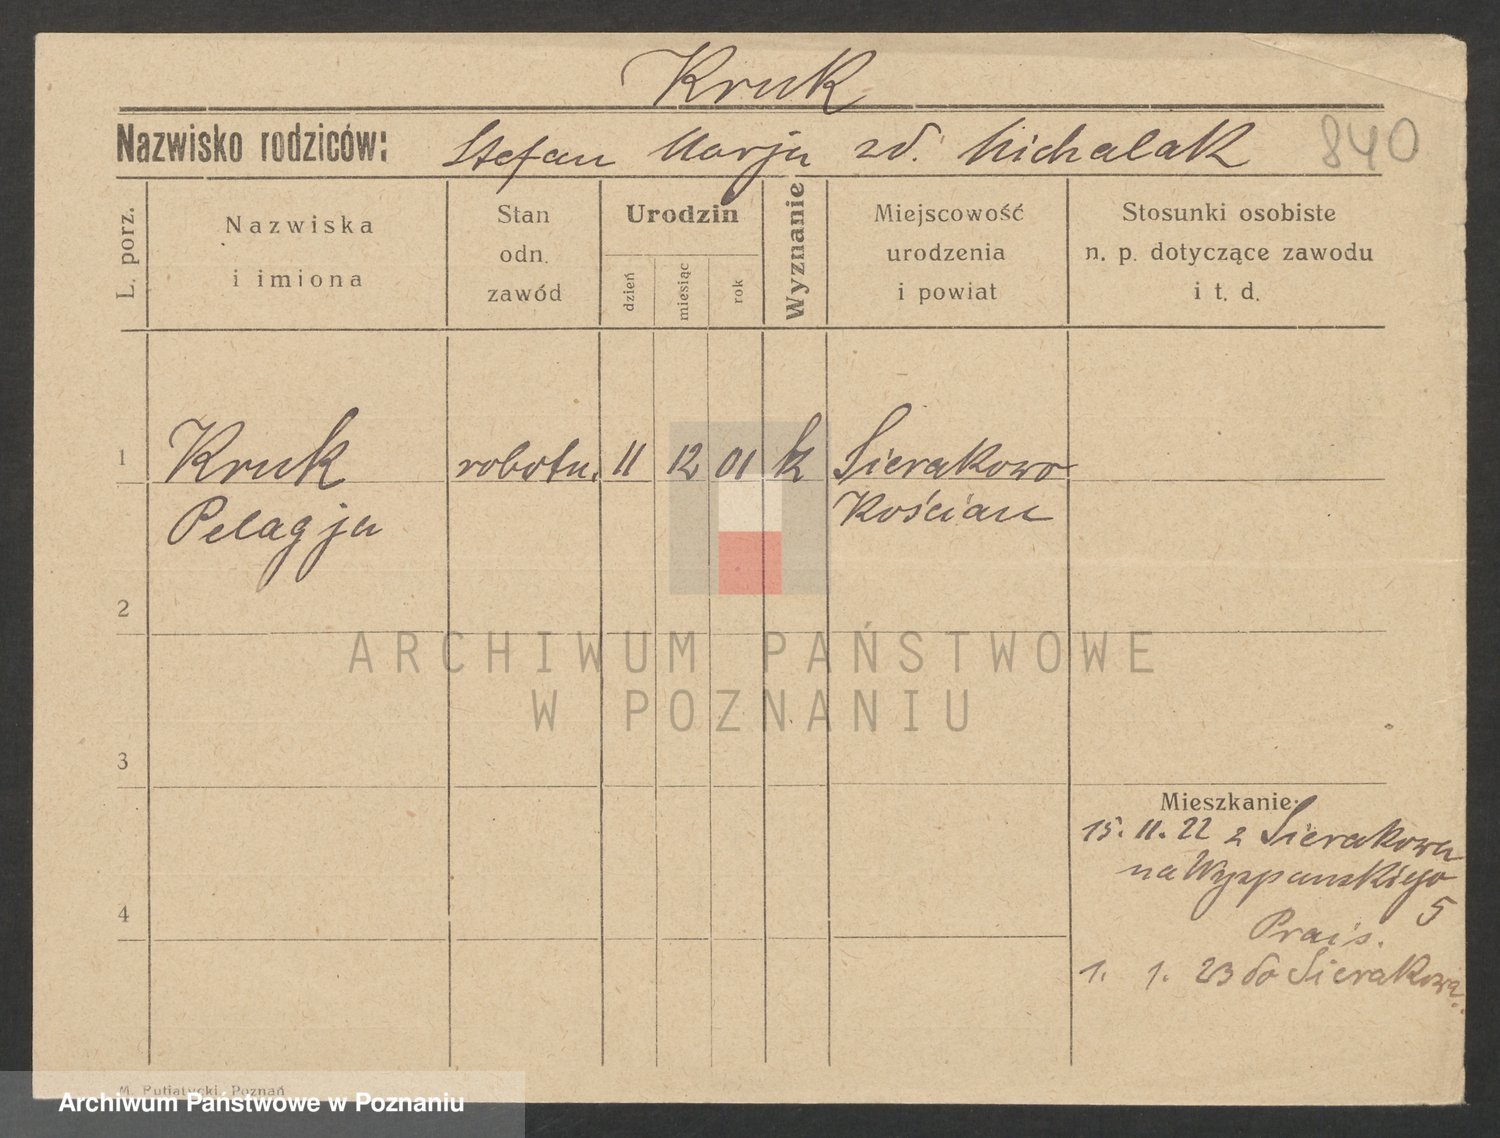 Kruk
Nazwisko rodziców: Stefan Marja zd. Michalak 840
L. porz.
Nazwiska
i imiona
Stan
odn.
zawód
Urodzin
dzień
miesiąc
rok
Wyznanie
Miejscowość
urodzenia
i powiat
Stosunki osobiste
n. p. dotyczące zawodu
i t. d.
1 Kruk robotn. 11 12 01 k Sierakowo
Pelagja Kościan
2
3
4
Mieszkanie:
15. 11. 22 z Sierakowa
na Wyspanskiego
5
Prais.
1. 1. 23 do Sierakowa.
M. Putiatycki, Poznań
ARCHIWUM PAŃSTWOWE
W POZNANIU
Archiwum Państwowe w Poznaniu